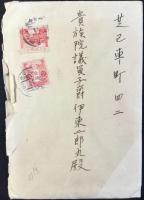 芝区車町四二
貴族院議員子爵伊東二郎丸殿